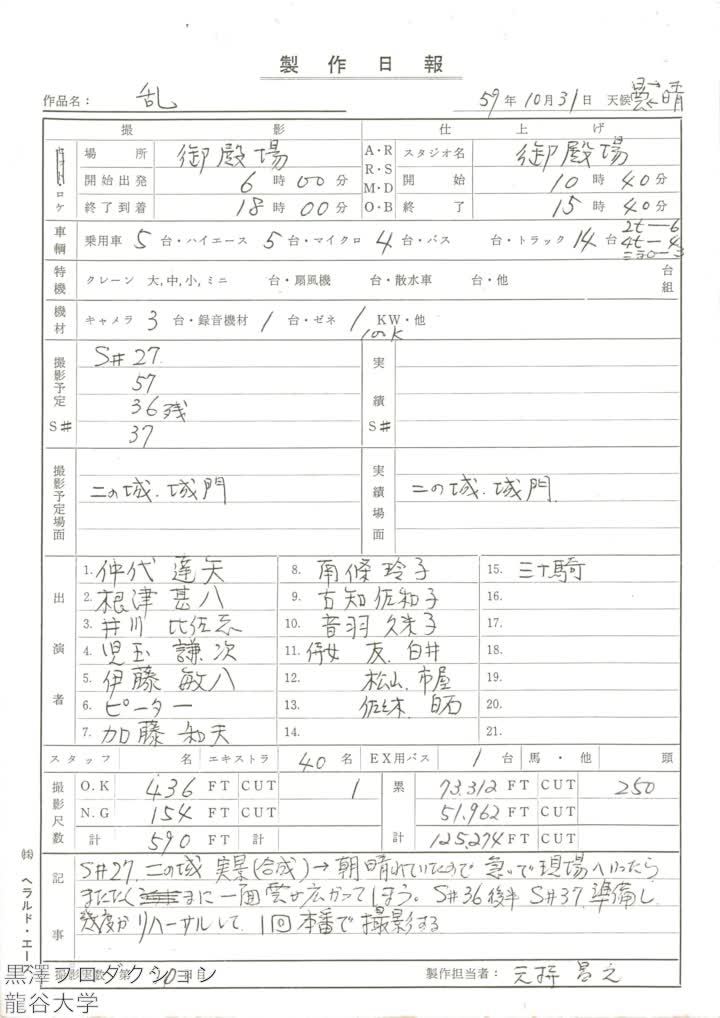 製作日報
作品名： 乱 59年10月31日 天候 曇↔晴
撮影 仕上げ
セット・ロケ 場所 御殿場 A・R R・S M・D O・B スタジオ名 御殿場
開始出発 6時00分 開始 10時40分
終了到着 18時00分 終了 15時40分
車輌 乗用車 5台・ハイエース 5台・マイクロ 4台・バス 台・トラック 14台 2t―6 4t―4
特機 クレーン 大,中,小,ミニ 台・扇風機 台・散水車 台・他 台組
機材 キャメラ 3台・録音機材 1台・ゼネ 1 KW・他
100K
撮影予定 S# S#27. 実績 S#
57
36残
37
撮影予定場面 二の城.城門 実績場面 二の城.城門
出演者 1.仲代達矢 8.南條玲子 15.三十騎
2.根津甚八 9.古知佐和子 16.
3.井川比佐志 10.音羽久米子 17.
4.児玉謙次 11.侍女 友.白井 18.
5.伊藤敏八 12.松山.市屋 19.
6.ピーター 13.佐々木.白石 20.
7.加藤和夫 14. 21.
スタッフ 名 エキストラ 40名 EX用バス 1台 馬・他 頭
撮影尺数 O.K 436 FT CUT 1 累計 73.312 FT CUT 250
N.G 154 FT CUT 51.962 FT CUT
計 590 FT 計 125.274 FT CUT
記事 S#27.二の城 実景(合成)→朝晴れていたので 急いで現場へいったら
またたくまに一面雲が広がってしまう。S#36後半 S#37.準備し
幾度かリハーサルして、1回本番で撮影する
㈱ヘラルド・エース
撮影実数 第 日目 製作担当者：
黒澤プロダクション
龍谷大学